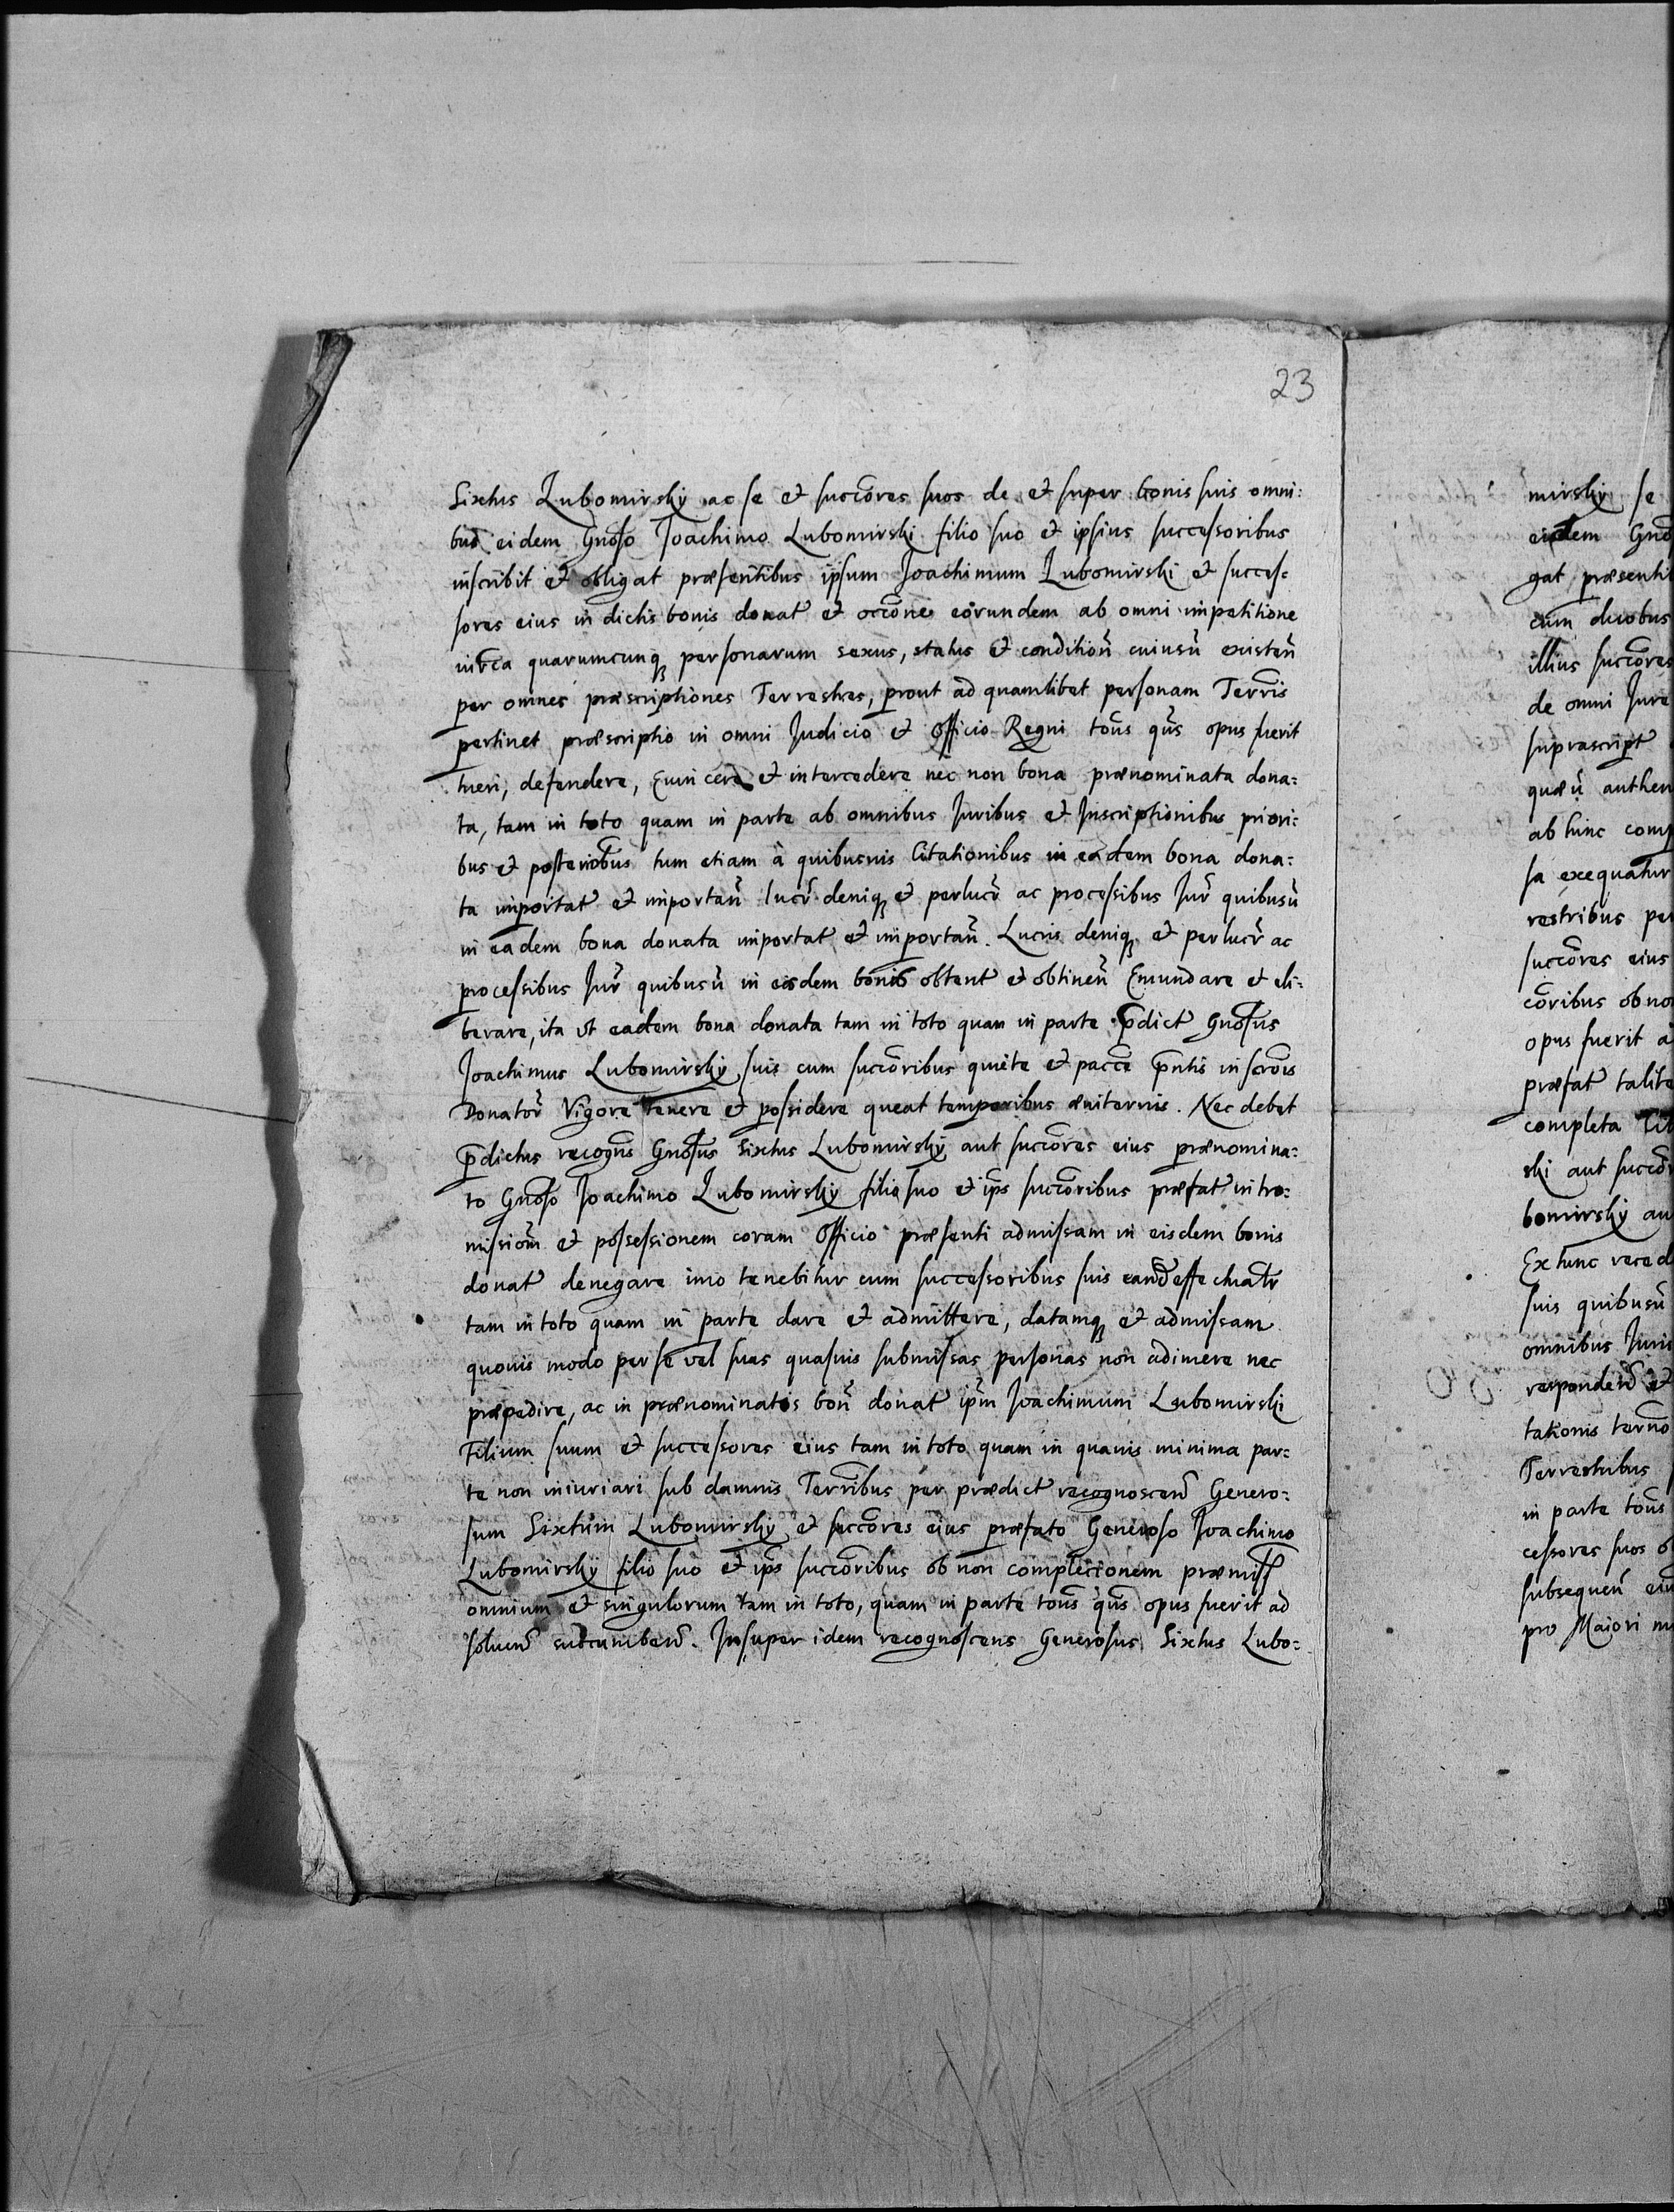 23
Sixtus Lubomirsky ac se et succores suos de et super bonis suis omni:
bus eidem Gnoso Joachimo Lubomirski filio suo et ipsius successoribus
inscribit et obligat præsentibus ipsum Joachimum Lubomirski et succes:
sores eius in dictis bonis donat et occone eorundem ab omni impetitione
iurca quarumcunq personarum sexus, status et condition cuiusu existen
per omnes præscriptiones Terrestres, prout ad quamlibet personam Terris
pertinet præscriptio in omni Judicio et Officio Regni tons qns opus fuerit
tueri, defendere, Euincere et intercedere nec non bona prænominata dona:
ta, tam in toto quam in parte ab omnibus Juribus et Inscriptionibus priori:
bus et posteriobus tum etiam à quibusuis Citationibus in eadem bona dona:
ta importat et importan lucr deniq et perlucr ac processibus Jur quibusu
in eadem bona donata importat et importan. Lucris deniq et perlucr ac
processibus Jur quibusu in eisdem bonis obtent et obtinen Emundare et eli:
berare, ita vt eadem bona donata tam in toto quam in parte pdict Gnosus
Joachimus Lubomirsky suis cum succoribus quiete et pacce pntis inscrois
Donator Vigore tenere et possidere queat temporibus æuiternis. Nec debet
pdictus recogns Gnosus Sixtus Lubomirsky aut succores eius prænomina:
to Gnoso Joachimo Lubomirsky filio suo et ips succoribus præfat intro:
missiom et possessionem coram Officio præsenti admissam in eisdem bonis
donat denegare imo tenebitur cum successoribus suis eand effectuatr
tam in toto quam in parte dare et admittere, datamq et admissam
quouis modo per se vel suas quasuis submissas personas non adimere nec
præpedire, ac in prænominatis bon donat ipm Joachimum Lubomirski
Filium suum et successores eius tam in toto quam in quauis minima par:
te non iniuriari sub damnis Terribus per prædict recognoscend Genero:
sum Sixtum Lubomirsky et succores eius præfato Generoso Joachimo
Lubomirsky filio suo et ips succoribus ob non complecionem præmiss
omnium et singulorum tam in toto, quam in parte tons qns opus fuerit ad
soluend succumbend. Insuper idem recognoscens Generosus Sixtus Lubo:
mirsky se
eidem Gno
gat præsenti
cum duobus
illius succores
de omni Jure
suprascript
quæu authen
ab hinc comp
sa exequatur
restribus per
succores eius
coribus ob no
opus fuerit a
præfat talite
completa Tit
ski aut succo
bomirsky au
Ex tunc reced
suis quibusu
omnibus Juri
respondend et
tationis terno
Terrestribus
in parte tons
cessores suos o
subsequen eiu
pro Maiori